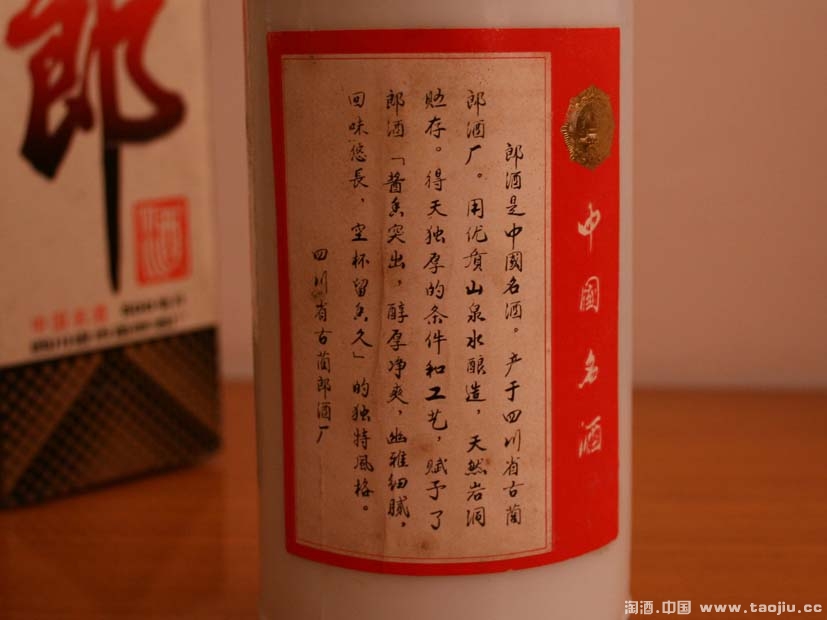 郎酒是中國名酒。产于四川省古蔺
郎酒厂。用优质山泉水酿造，天然岩洞
贮存。得天独厚的条件和工艺，赋予了
郎酒「酱香突出，醇厚净爽，幽雅细腻，
回味悠長，空杯留香久」的独特風格。
四川省古蔺郎酒厂
中國名酒
郎
酒
淘酒.中国 www.taojiu.cc